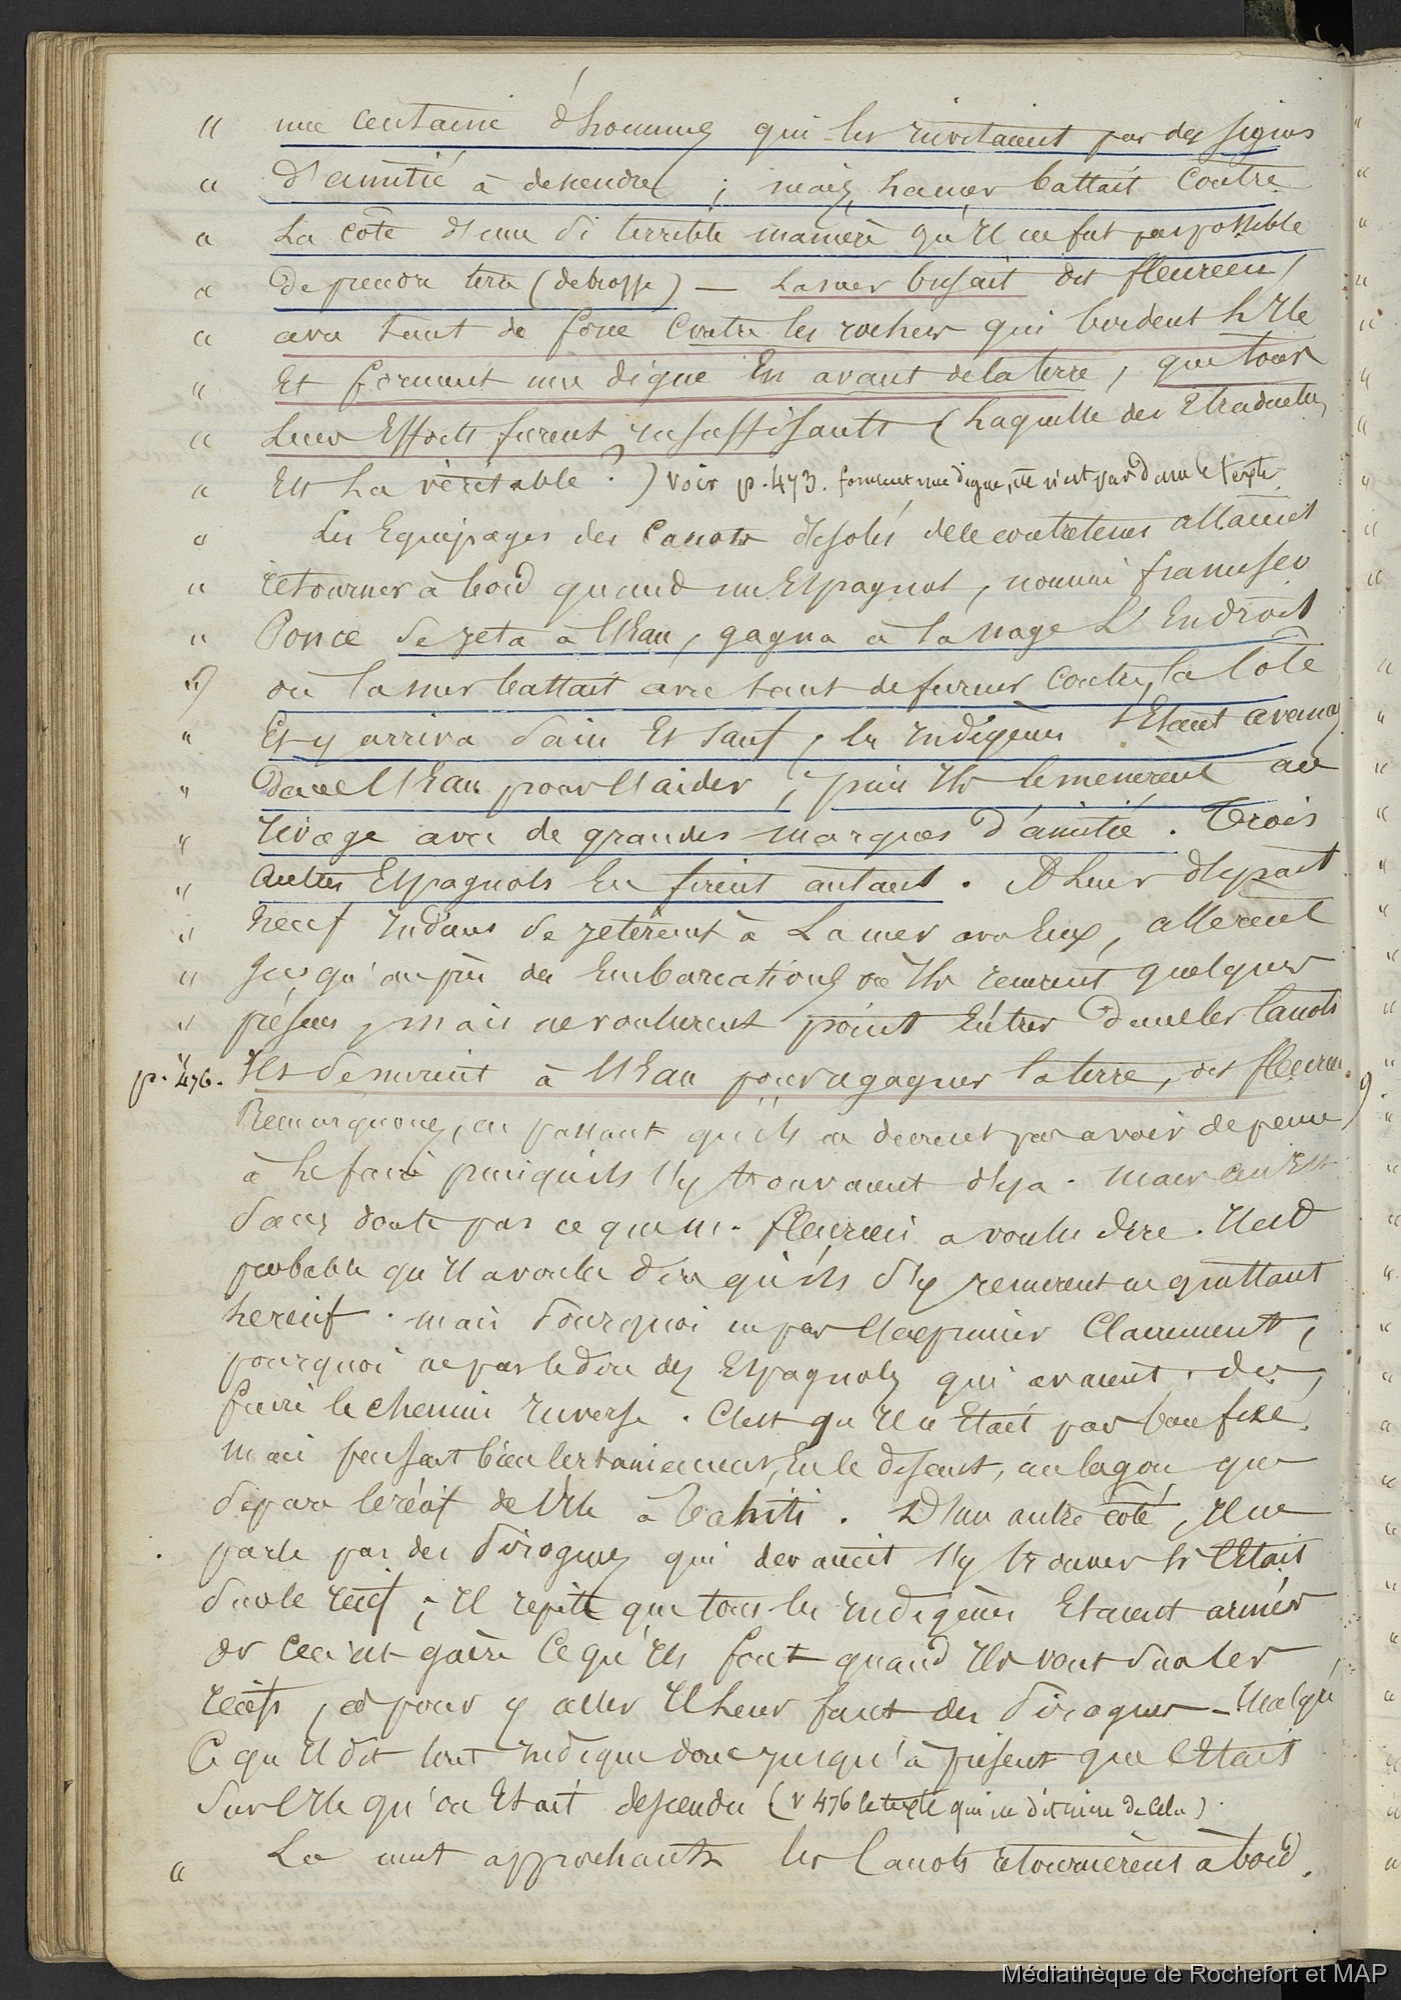 " une centaine d'hommes qui les invitaient par des signes
" d'amitié à descendre ; mais, la mer battait contre
" La côte d'une si terrible manière qu'Il ne fut pas possible
" De prendre terre (debrosse) — La mer brisait dit fleurieu,
" avec tant de force Contre les rochers qui bordent L'Ile
" Et forment une digue En avant de la terre, que tous
" Leurs Efforts furent insuffisants (Laquelle des 2 traductions
" Est La véritable ?) voir p. 473. forment une digue, ce n'est pas dans le texte.
" Les Equipages des Canots désolés de ce contretems allaient
" retourner à bord quand un Espagnol, nommé francisco
" Ponce se jeta à l'Eau, gagna à la nage L'Endroit
" où la mer battait avec tant de fureur Contre la Côte
" Et y arriva Sain Et Sauf, les Indigènes s'Etant avancés
" Dans l'Eau pour l'aider ; puis Ils le menèrent au
" rivage avec de grandes marques d'amitié. Trois
" autres Espagnols En firent autant. A Leur départ
" Neuf Indiens Se jetèrent à La mer avec Eux, allèrent
" Jusqu'auprès des Embarcations où Ils reçurent quelques
" présens, mais ne voulurent point Entrer Dans les Canots
p. 476. " Ils Se mirent à l'Eau pour regagner la terre, dit fleurieu.
Remarquons, en passant qu'ils ne durent pas avoir de peine
à Le faire puisqu'ils s'y trouvaient déja. Mais ce n'Est
Sans doute pas ce que m. fleurieu a voulu dire. Il est
probable qu'Il a voulu dire qu'ils S'y remirent en quittant
le récif. mais Pourquoi ne pas s'exprimer Clairement,
pourquoi ne pas le dire des Espagnols qui avaient dû
faire le chemin Inverse. C'est qu'Il n'Etait pas bien fixé,
mais pensait bien Certainement, En le disant, au lagon qui
Sépare le récif de l'Ile à Tahiti. D'un autre côté, Il ne
parle pas des Pirogues qui devaient s'y trouver si C'Etait
Sur le récif ; Il répète que tous les Indigènes Etaient armés
or Ceci n'est guère Ce qu'Ils font quand Ils vont Sur les
récifs, et pour y aller Il Leur faut des Pirogues — Malgré
Ce qu'Il dit tout Indique donc jusqu'à présent que C'Etait
Sur l'Ile qu'on Etait descendu (v 476 le texte qui ne dit rien de Cela).
" La nuit approchant les Canots retournèrent à bord.
Médiathèque de Rochefort et MAP